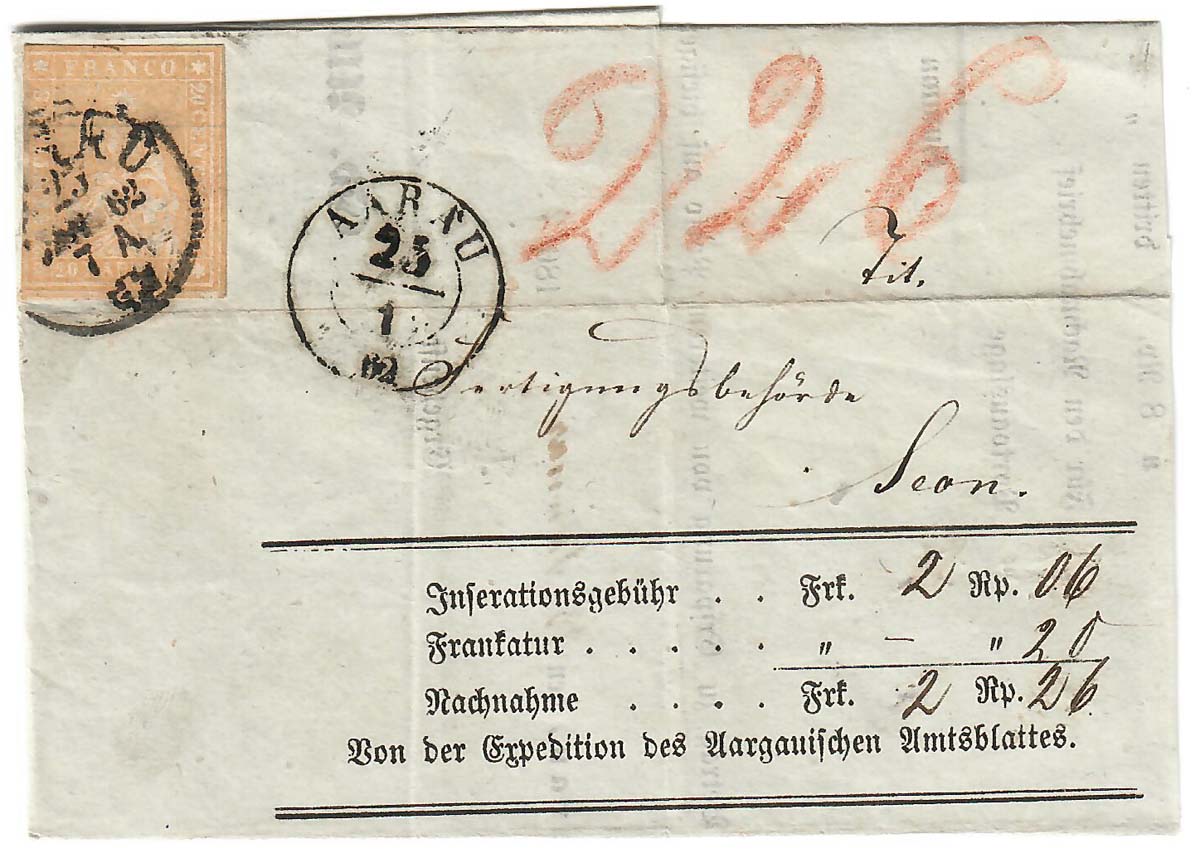 FRANCO
226
AARAU
25
1
62
Tit.
Fertigungsbehörde
Seon.
Inserationsgebühr . . Frk. 2 Rp. 06
Frankatur . . . . . " – " 20
Nachnahme . . . . Frk. 2 Rp. 26
Von der Expedition des Aargauischen Amtsblattes.